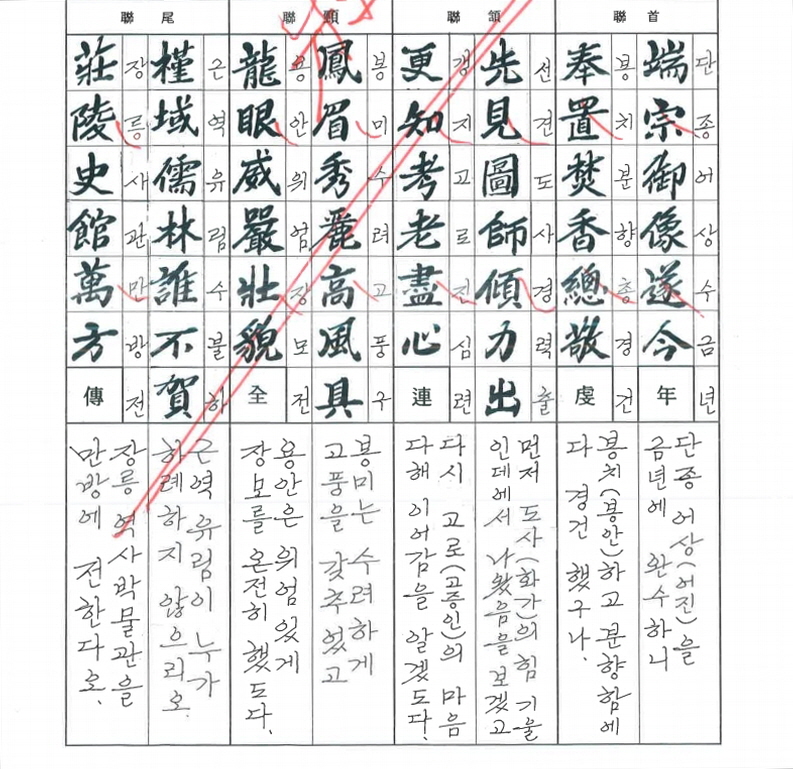 首聯
端宗御像遂今年
단종어상수금년
奉置焚香總敬虔
봉치분향총경건
頷聯
先見圖師傾力出
선견도사경력출
更知考老盡心連
갱지고로진심련
頸聯
鳳眉秀麗高風具
봉미수려고풍구
龍眼威嚴壯貌全
용안위엄장모전
尾聯
槿域儒林誰不賀
근역유림수불하
莊陵史館萬方傳
장릉사관만방전
단종 어상(어진)을
금년에 완수하니
봉치(봉안)하고 분향함에
다 경건 했구나.
먼저 도사(화가)의 힘 기울
인데에서 나왔음을 보겠고
다시 고로(고증인)의 마음
다해 이어감을 알겠도다.
봉미는 수려하게
고풍을 갖추었고
용안은 위엄있게
장모를 온전히 했도다.
근역 유림이 누가
하례하지 않으리오
장릉 역사박물관을
만방에 전한다오.